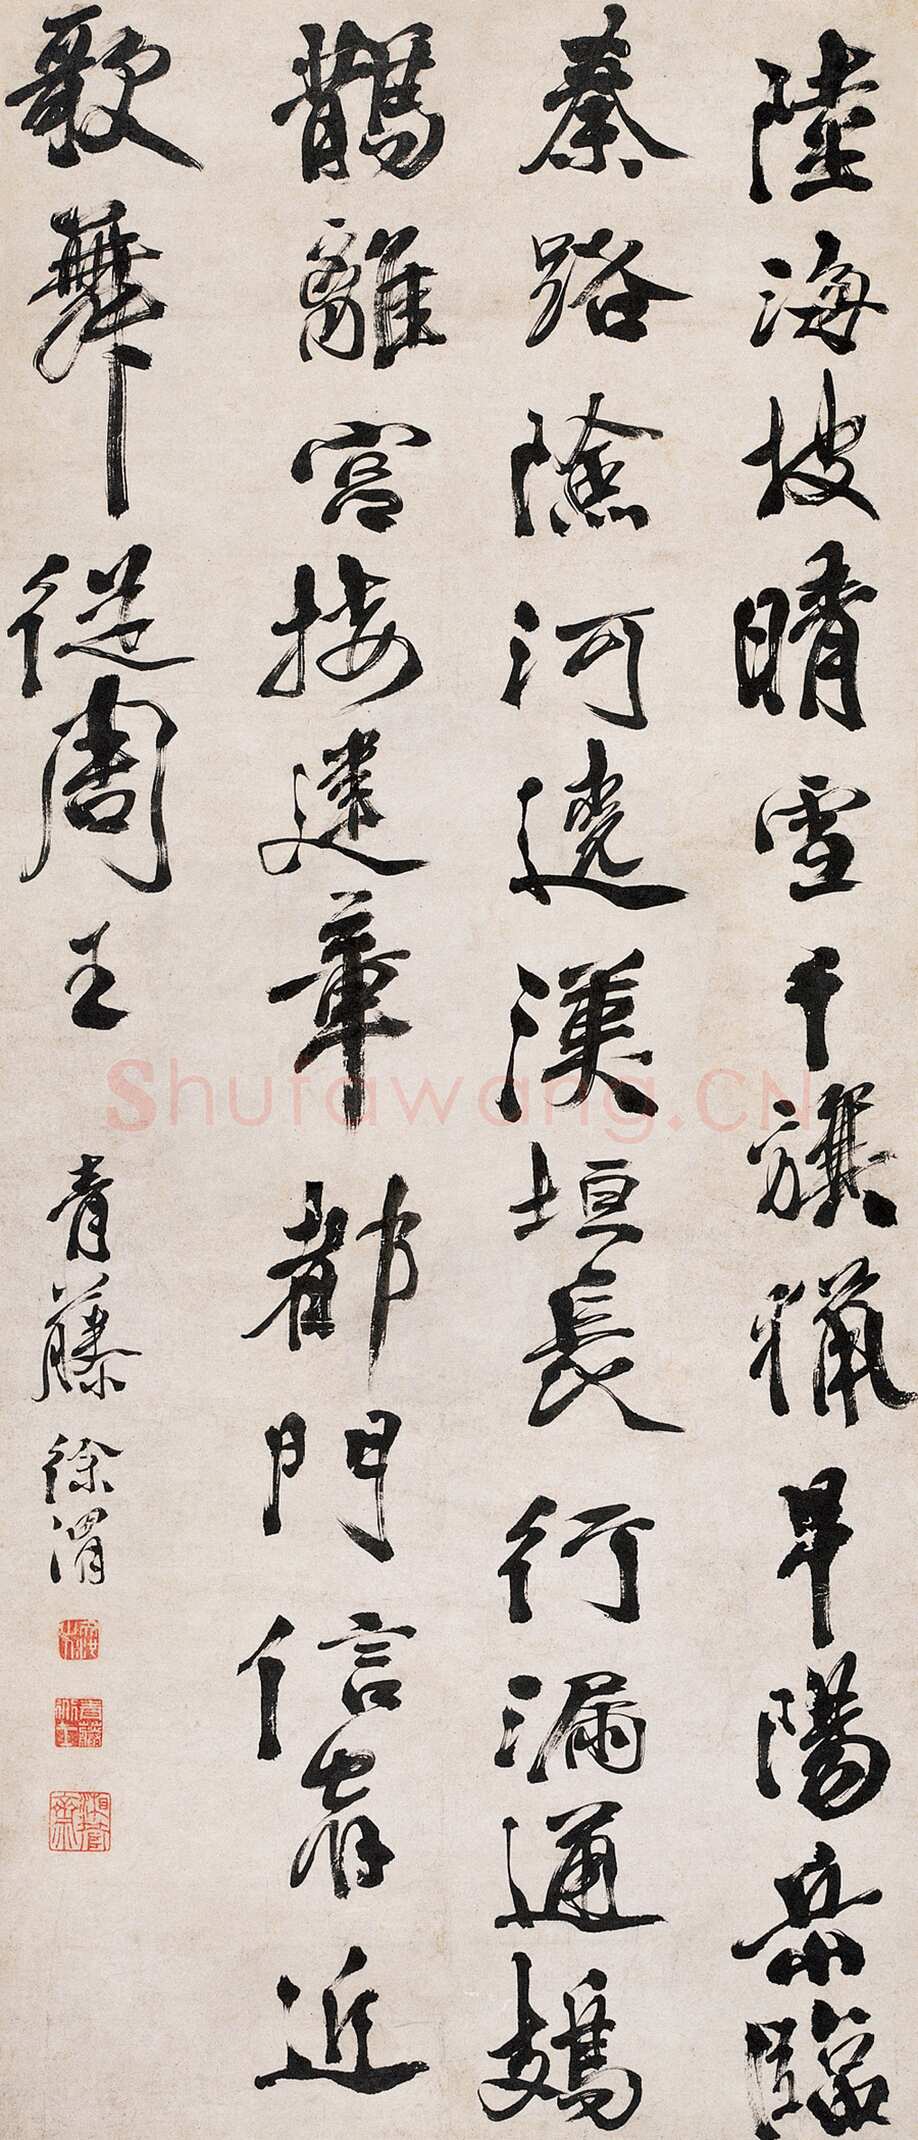 陸海披晴雪千旗獵早陽岳臨
秦路險河遶漢垣長行漏通鳷
鵲離宮接建章都門信宿近
歌舞從周王
青藤徐渭
湘管齋
Shufawang.CN